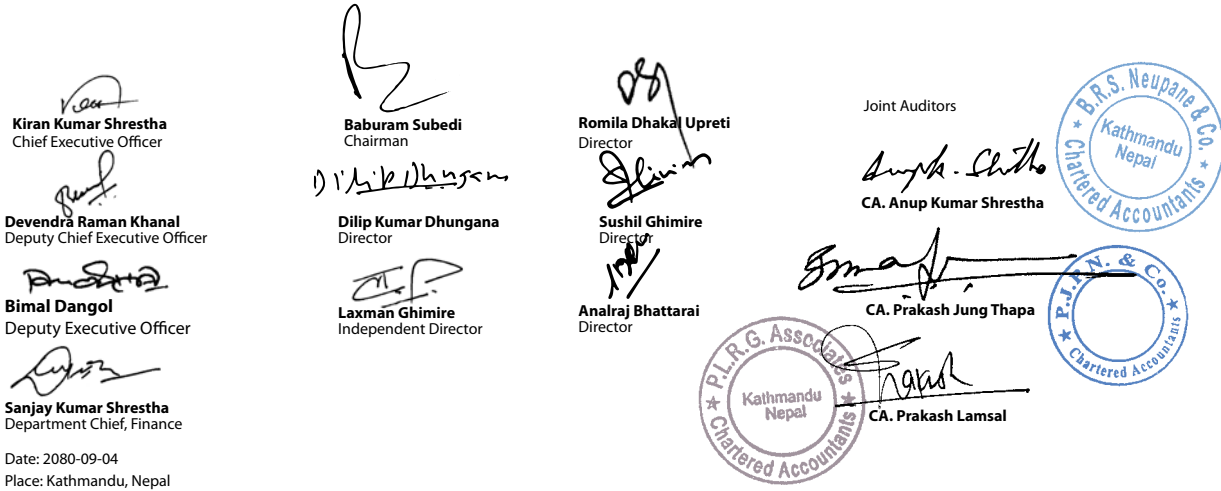 Kiran Kumar Shrestha
Chief Executive Officer
Devendra Raman Khanal
Deputy Chief Executive Officer
Bimal Dangol
Deputy Executive Officer
Sanjay Kumar Shrestha
Department Chief, Finance
Date: 2080-09-04
Place: Kathmandu, Nepal
Baburam Subedi
Chairman
Dilip Dhungana
Dilip Kumar Dhungana
Director
Laxman Ghimire
Independent Director
Romila Dhakal Upreti
Director
Sushil Ghimire
Director
Analraj Bhattarai
Director
Joint Auditors
CA. Anup Kumar Shrestha
B.R.S. Neupane & Co.
Kathmandu
Nepal
Chartered Accountants
CA. Prakash Jung Thapa
P.J.P.N. & Co.
Chartered Accountants
CA. Prakash Lamsal
P.L.R.G. Associates
Kathmandu
Nepal
Chartered Accountants